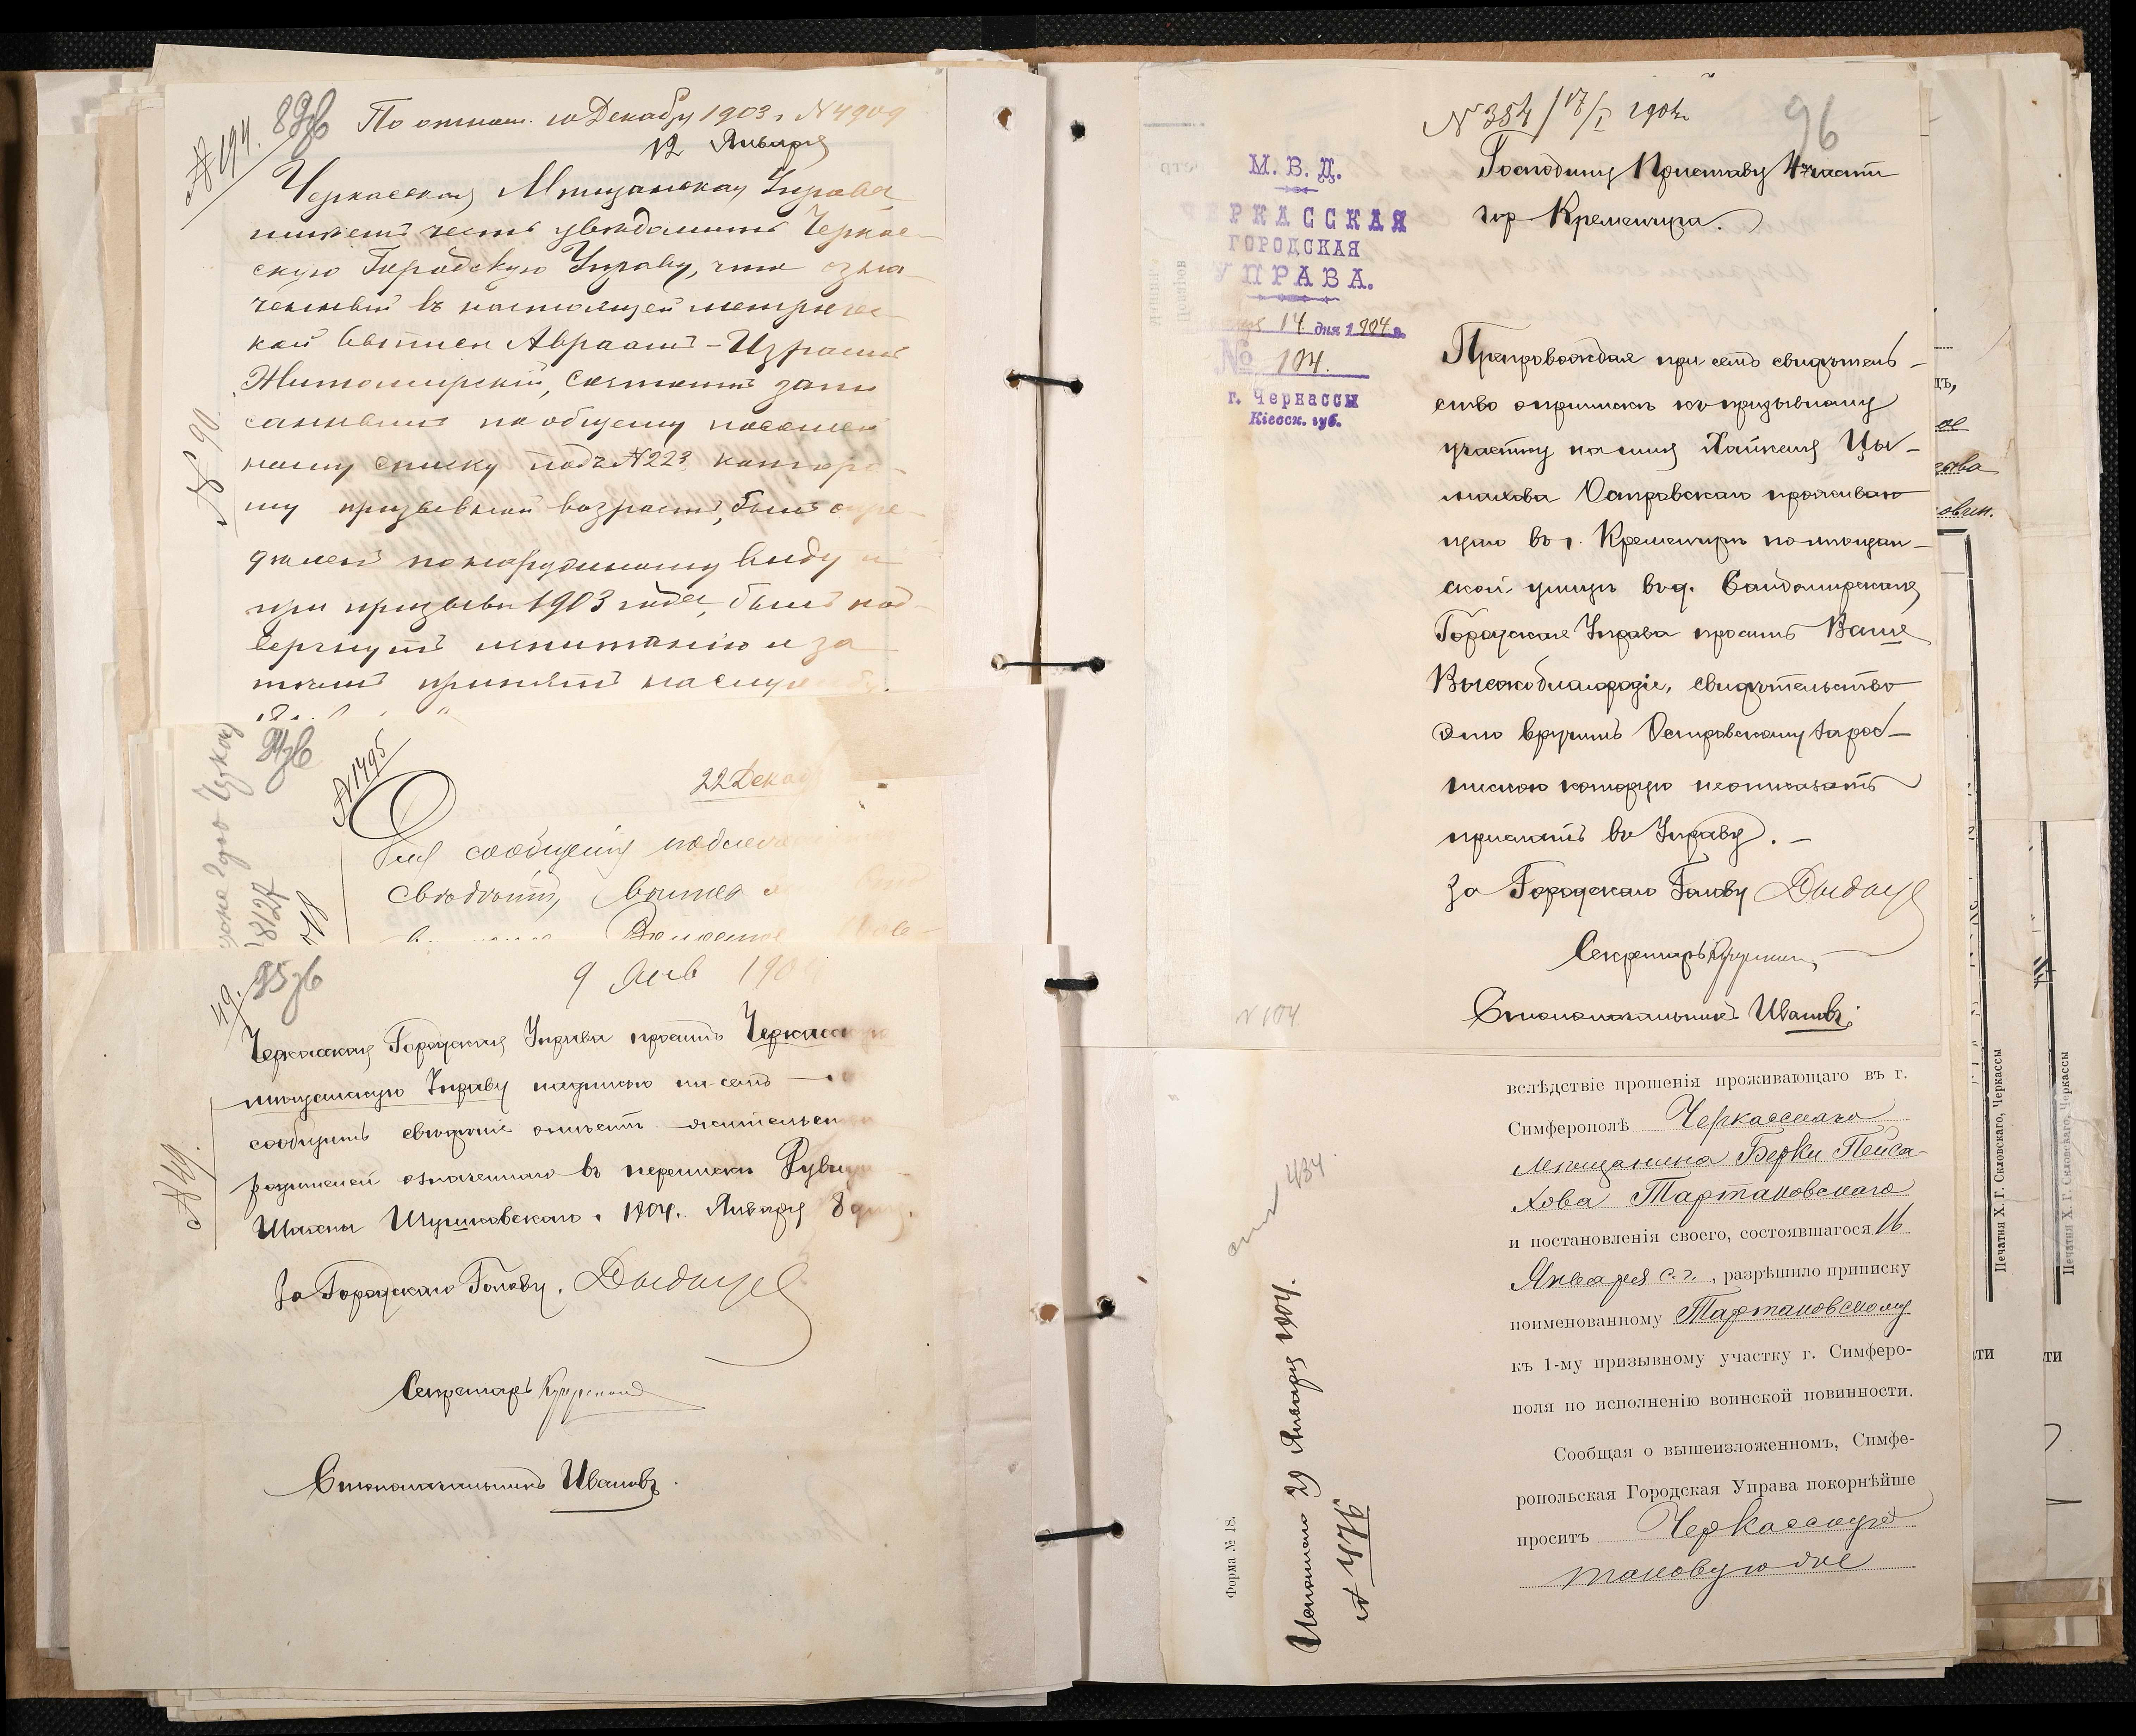 № 194.
89 зв
По отнош. 10 Декабр 1903 г. № 4909
12 Января
Черкасская Мещанская Управа
имеетъ честь увѣдомить Черкас-
скую Городскую Управу, что озна-
ченный въ настоящей метричес-
кой выписи Авраамъ-Израиль
Житомирскій, состоитъ запи
саннымъ по общему посемей
ному списку подъ № 223 которо-
му призывной возрастъ, былъ опре-
дѣленъ по наружному виду и
при призывѣ 1903 года, былъ под-
вергнутъ испытанію и за
тѣмъ принятъ на службу.
№ 90
91 зв
№ 1495
22 Декаб
Для сообщенія
свѣдѣній,
8127
95 зв
49.
9 Янв 1904
Черкасская Городская Управа проситъ Черкасскую
мѣщанскую Управу надписью на семъ
сообщить свѣдѣніе о мѣстѣ жительства
родителей означеннаго въ перепискѣ Рувина
Шахны Шушковскаго. 1904. Января 8 дня.
№ 49.
За Городскаго Голову.
Секретарь
Столоначальникъ Ивановъ.
№ 354/17/I 1904 г.
96
М. В. Д.
ЧЕРКАССКАЯ
ГОРОДСКАЯ
УПРАВА.
14 дня 1904 г.
№ 104.
г. Черкассы
Кіевск. губ.
Господину Приставу 4й части
гор Кременчуга.
Препровождая при семъ свидѣтель-
ство о припискѣ къ призывному
участку на имя Хаикеля Цы-
махова Островскаго проживаю
щаго въ г. Кременчугѣ по мѣщан-
ской улицѣ въ д. Сандомирскаго
Городская Управа проситъ Ваше
Высокоблагородіе, свидѣтельство
это вручить Островскому подрос-
пискою которую не откажите
прислать въ Управу. —
За Городскаго Голову
Секретарь
Столоначальникъ Ивановъ.
№ 104
вслѣдствіе прошенія проживающаго въ г.
Симферополѣ Черкасскаго
мѣщанина Берки Пейса-
хова Тартаковскаго
и постановленія своего, состоявшагося 16
Января с.г., разрѣшило приписку
поименованному Тартаковскому
къ 1-му призывному участку г. Симферо-
поля по исполненію воинской повинности.
Сообщая о вышеизложенномъ, Симфе-
ропольская Городская Управа покорнѣйше
проситъ Черкасскую
таковую же
434.
Исполнено 29 Января 1904.
№ 476
Форма № 18.
Печатня Х. Г. Скловскаго, Черкассы
Печатня Х. Г. Скловскаго, Черкассы